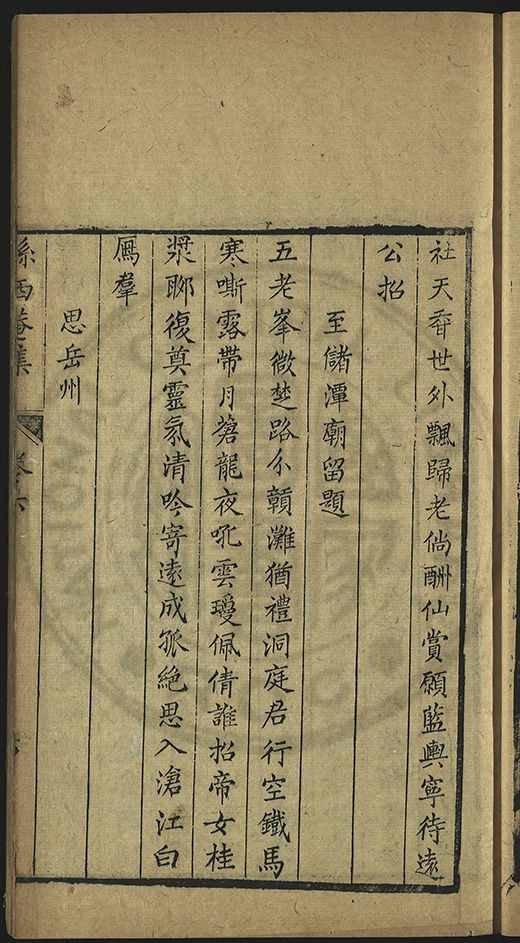 社天香世外飄歸老倘酬仙賞願藍輿寧待遠
公招
至儲潭廟留題
五老峯微楚路分贛灘猶禮洞庭君行空鐵馬
寒嘶露帶月蒼龍夜吼雲瓊佩倩誰招帝女桂
漿聊復奠靈氛清吟寄遠成孤絶思入滄江白
鴈羣
思岳州
西菴集